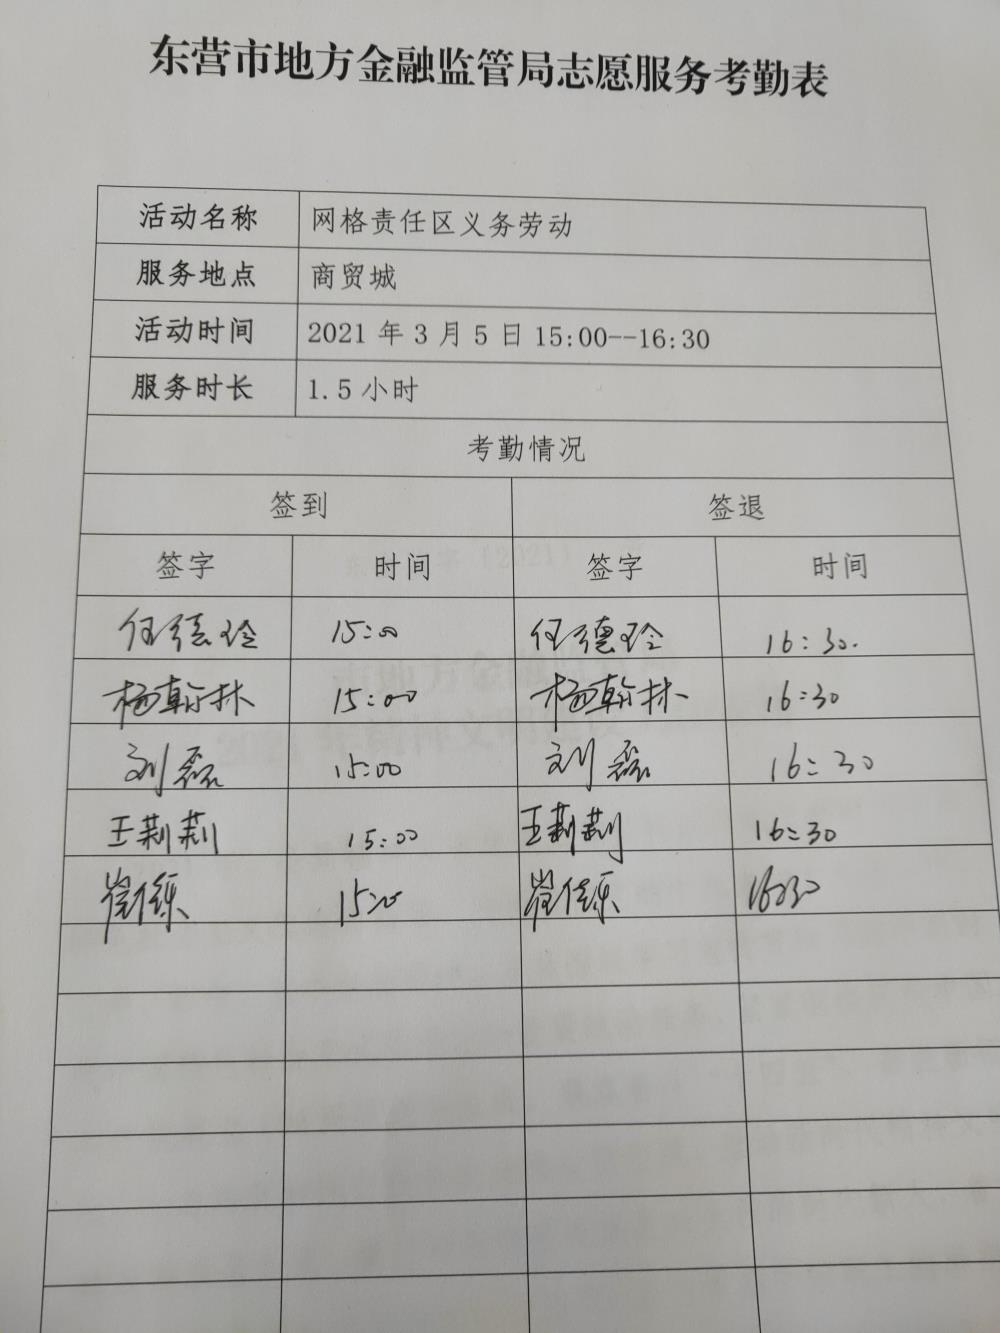 东营市地方金融监管局志愿服务考勤表
活动名称 网格责任区义务劳动
服务地点 商贸城
活动时间 2021 年 3 月 5 日 15:00--16:30
服务时长 1.5 小时
考勤情况
签到 签退
签字 时间 签字 时间
任德玲 15:00 任德玲 16:30.
杨翰林 15:00 杨翰林 16:30
刘磊 15:00 刘磊 16:30
王莉莉 15:00 王莉莉 16:30
崔佳乐 15:00 崔佳乐 16:30